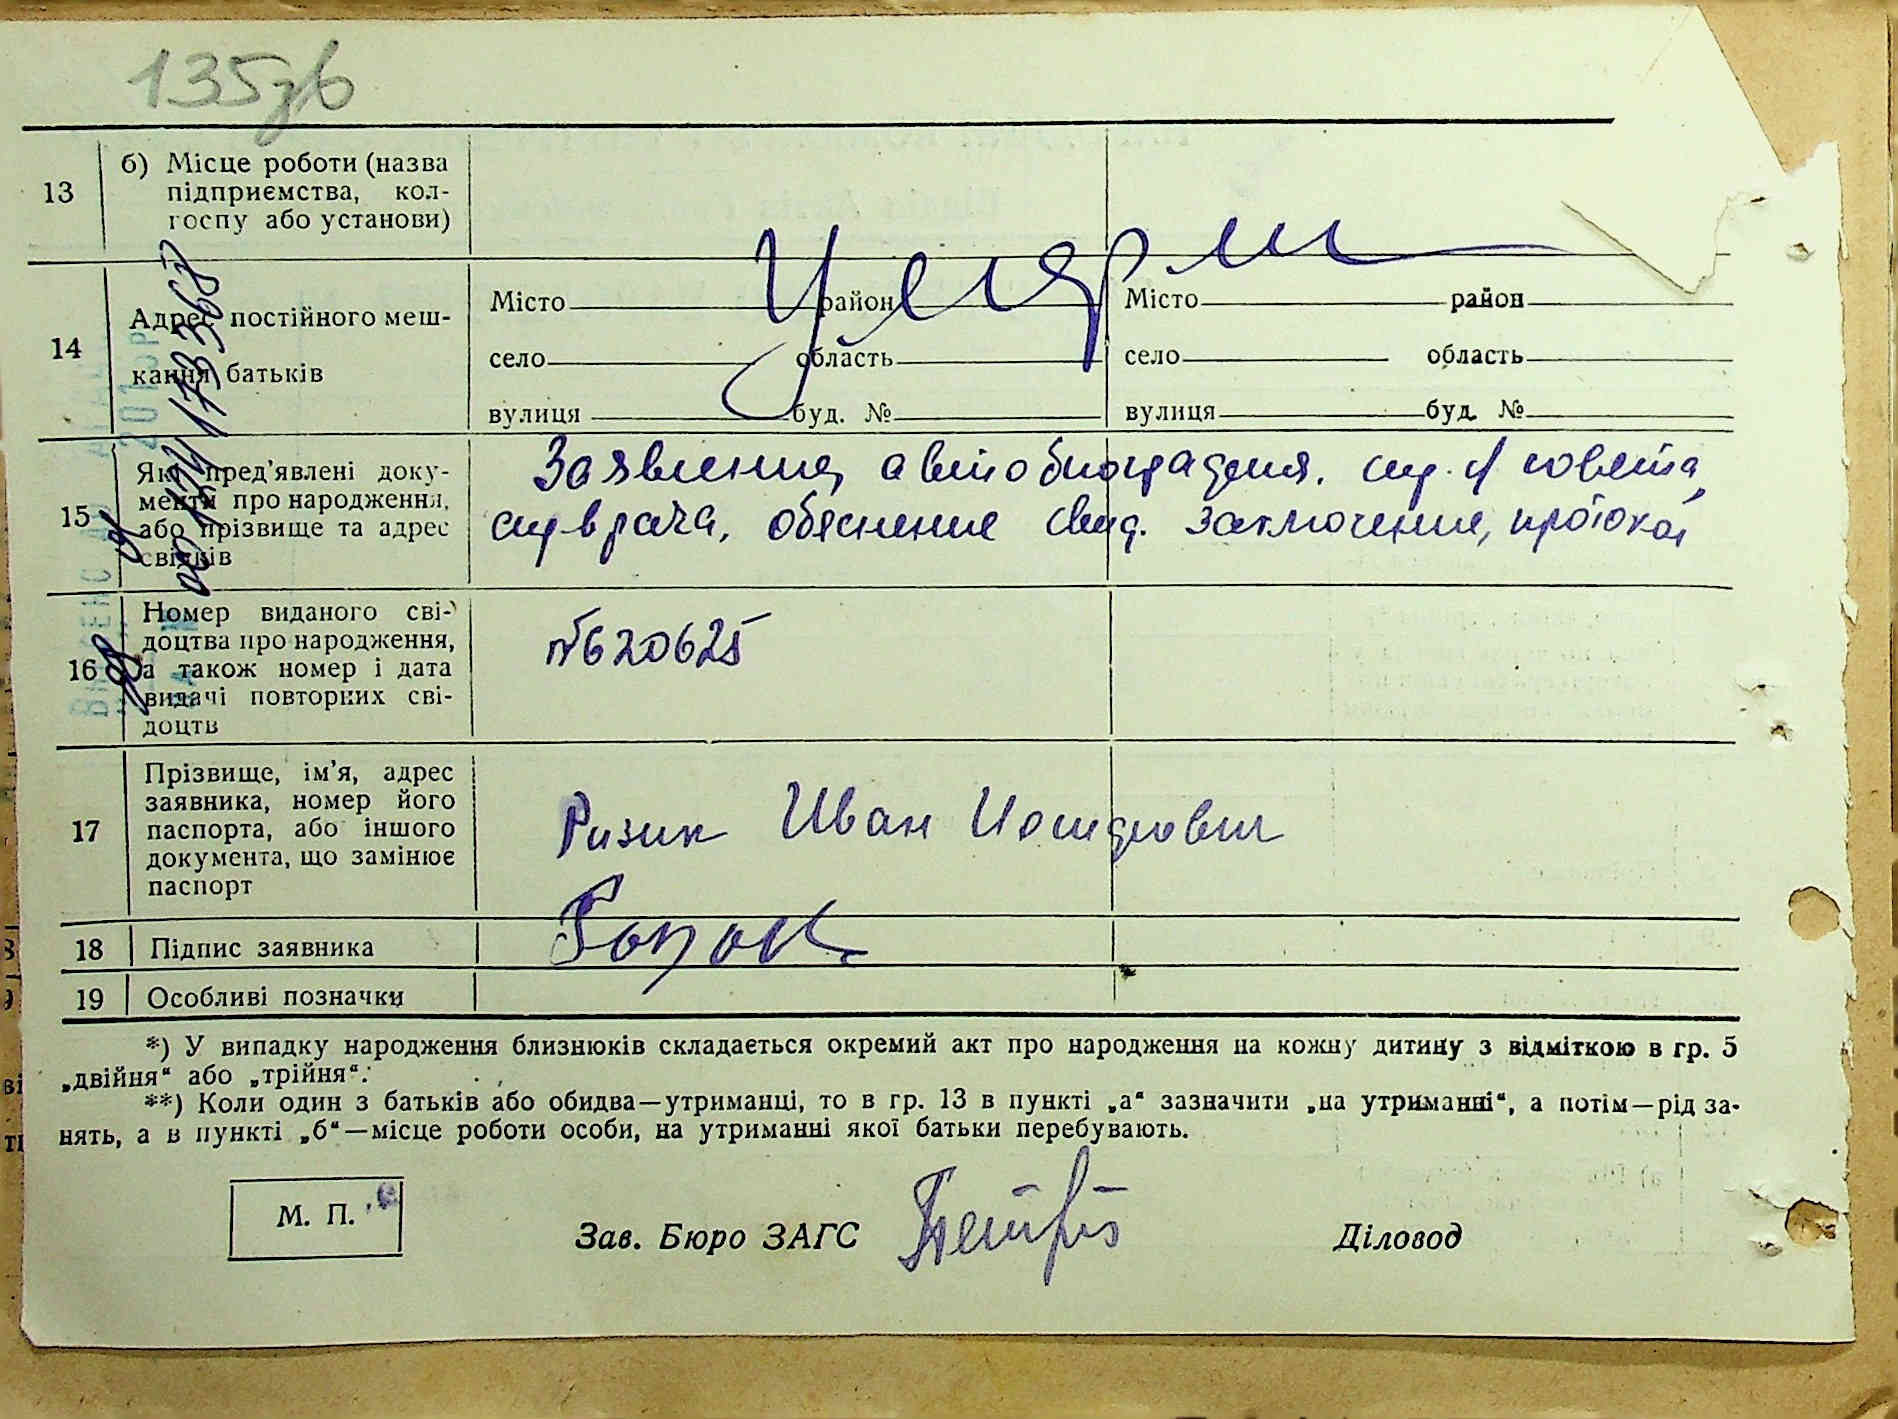 135зв
13 б) Місце роботи (назва
підприємства, кол-
госпу або установи)
Умерли
14 Адрес постійного меш-
кання батьків
Місто район Місто район
село область село область
вулиця буд. № вулиця буд. №
15 Які пред'явлені доку-
менти про народження,
або прізвище та адрес
свідків
Заявление, автобиография, спр. с/совета,
спр врача, обяснение свид. заключение, протокол
16 Номер виданого сві-
доцтва про народження,
а також номер і дата
видачі повторних сві-
доцтв
№620625
17 Прізвище, ім'я, адрес
заявника, номер його
паспорта, або іншого
документа, що замінює
паспорт
Ризик Иван Иосифович
18 Підпис заявника
19 Особливі позначки
*) У випадку народження близнюків складається окремий акт про народження на кожну дитину з відміткою в гр. 5
„двійня“ або „трійня“.
**) Коли один з батьків або обидва—утриманці, то в гр. 13 в пункті „а“ зазначити „на утриманні“, а потім—рід за-
нять, а в пункті „б“—місце роботи особи, на утриманні якої батьки перебувають.
М. П.
Зав. Бюро ЗАГС Діловод